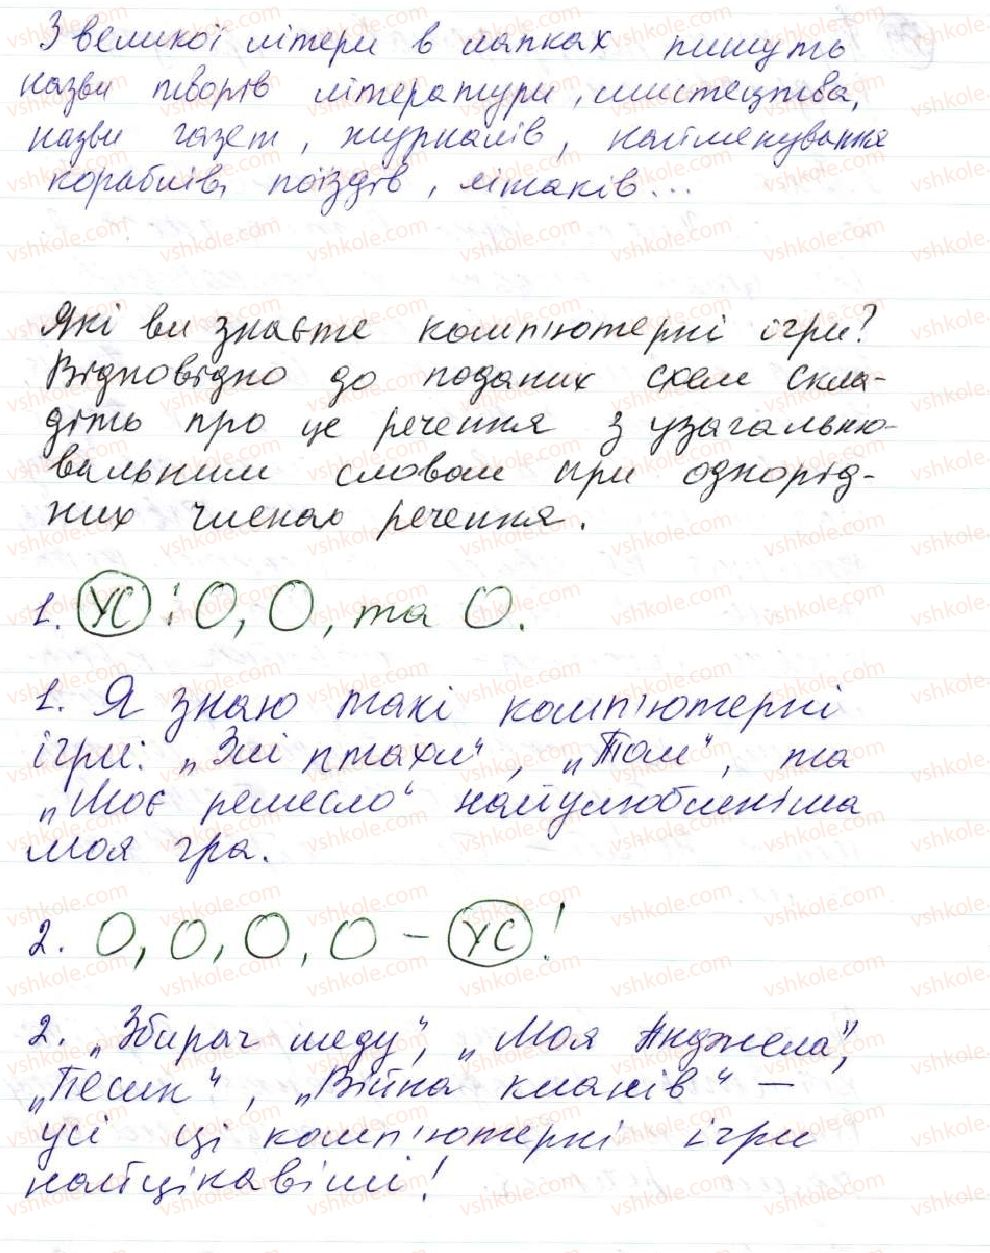 З великої літери в лапках пишуть
назви творів літератури, мистецтва,
назви газет, журналів, найменування
кораблів, поїздів, літаків...
Які ви знаєте комп'ютерні ігри?
Відповідно до поданих схем скла-
діть про це речення з узагальню-
вальним словом при однорід-
них членах речення.
1. УС : О, О, та О.
1. Я знаю такі комп'ютерні
ігри: „Злі птахи“, „Том“, та
„Моє ремесло“ найулюбленіша
моя гра.
2. О, О, О, О – УС !
2. „Збирач меду“, „Моя Анджела“,
„Песик“, „Війна кланів“ –
усі ці комп'ютерні ігри
найцікавіші!
vshkole.com